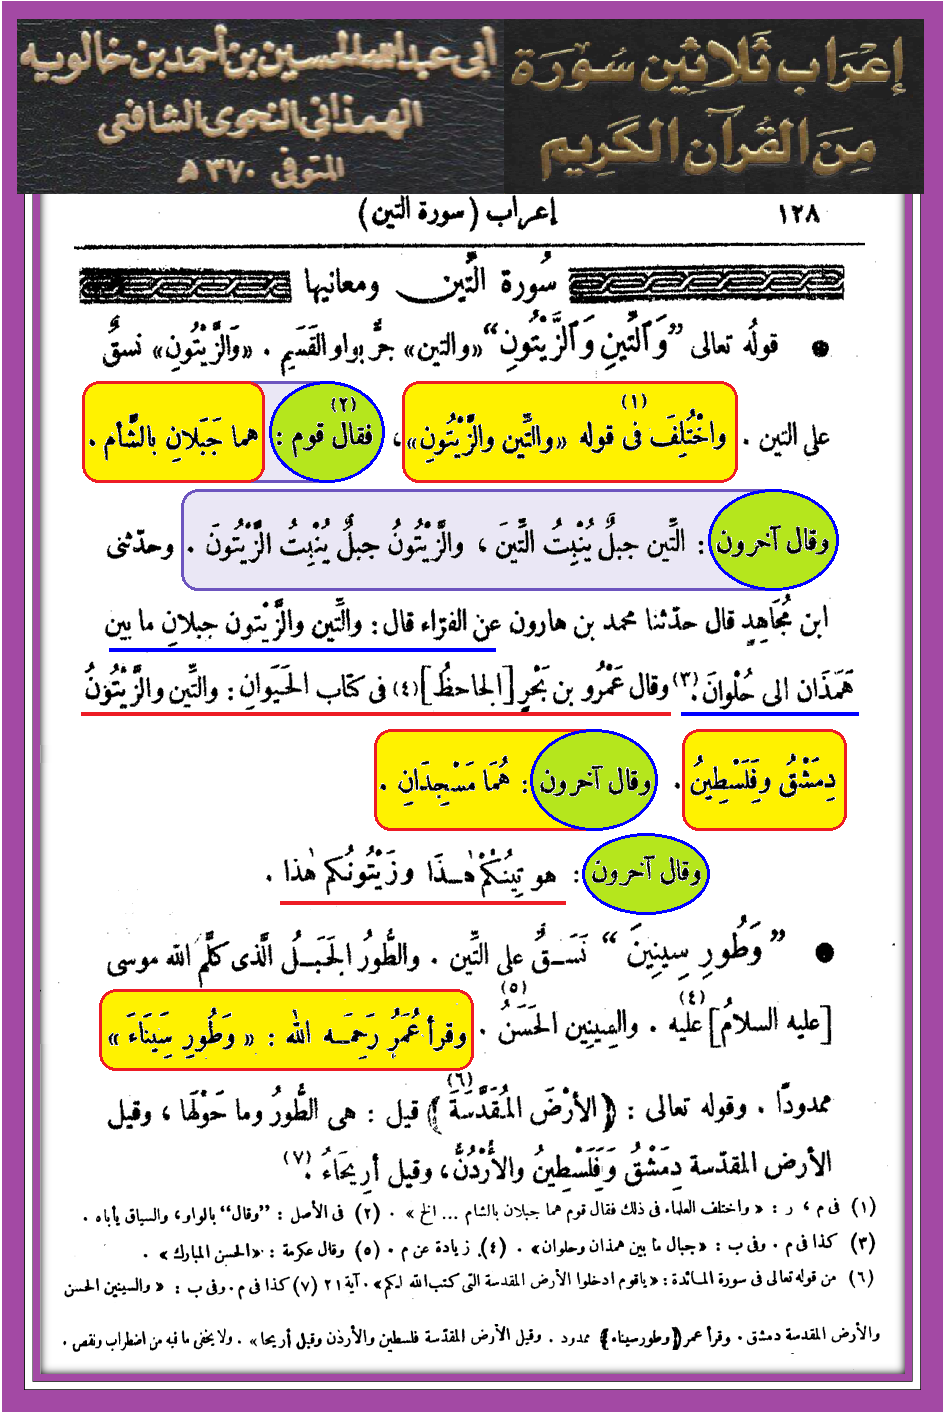 إعراب ثلاثين سورة
من القرآن الكريم
أبى عبد الله الحسين بن أحمد بن خالويه
الهمذانى النحوى الشافعى
المتوفى ٣٧٠ هـ
١٢٨
إعراب (سورة التين)
سُورة التِّين ومعانيها
• قولُه تعالى ”وَٱلتِّينِ وَٱلزَّيْتُونِ“ «والتين» جرٌّ بواو القَسَمِ . «وَالزَّيْتُونِ» نسقٌ
على التين . واخْتُلِفَ فى قوله (١) «والتِّينِ والزَّيْتُونِ»، فقال قوم (٢) : هما جَبَلانِ بالشَّأم .
وقال آخرون : التِّين جبلٌ يُنْبِتُ التِّينَ ، والزَّيْتُونُ جبلٌ يُنْبِتُ الزَّيْتُونَ . وحدّثنى
ابن مُجَاهِدٍ قال حدّثنا محمد بن هارون عن الفرّاء قال : والتِّين والزَّيْتون جبلانِ ما بين
هَمَذَان الى حُلْوانَ .(٣) وقال عَمْرُو بن بَحْرٍ [الجاحظُ] (٤) فى كتاب الحَيَوانِ : والتِّين والزَّيْتُونُ
دِمَشْقُ وفَلَسْطِينُ . وقال آخرون : هُمَا مَسْجِدَانِ .
وقال آخرون : هو تِينُكُمْ هٰـذَا وزَيْتُونُكم هٰذا .
• ” وَطُورِ سِينِينَ “ نَسَـقٌ على التِّين . والطُّورُ الجَبَـلُ الَّذى كلَّم الله موسى
[عليه السلامُ] (٤) عليه . والسِينِين الحَسَنُ (٥) . وقرأ عُمَرُ رَحِمَـه الله : « وَطُورِ سِينَاءَ »
ممدودًا . وقوله تعالى : ﴿الأَرْضَ المُقَدَّسَةَ﴾ (٦) قيل : هى الطُّورُ وما حَوْلَها ، وقيل
الأرض المقدّسة دِمَشْقُ وَفَلَسْطِينُ والأُرْدُنُّ، وقيل أرِيحَاءُ .(٧)
(١) فى م ، ر : « واختلف العلماء فى ذلك فقال قوم هما جبلان بالشام ... الخ » . (٢) فى الأصل : ”وقال“ بالواو، والسياق يأباه .
(٣) كذا فى م . وفى ب : «جبال ما بين همذان وحلوان» . (٤) زيادة عن م . (٥) وقال عكرمة : «الحسن المبارك» .
(٦) من قوله تعالى فى سورة المـائدة : «ياقوم ادخلوا الأرض المقدسة التى كتب الله لكم» . آية ٢١ (٧) كذا فى م . وفى ب : « والسينين الحسن
والأرض المقدسة دمشق . وقرأ عمر ﴿وطورسيناء﴾ ممدود . وقيل الأرض المقدّسة فلسطين والأردن وقيل أريحا» . ولا يخفى ما فيه من اضطراب ونقص .